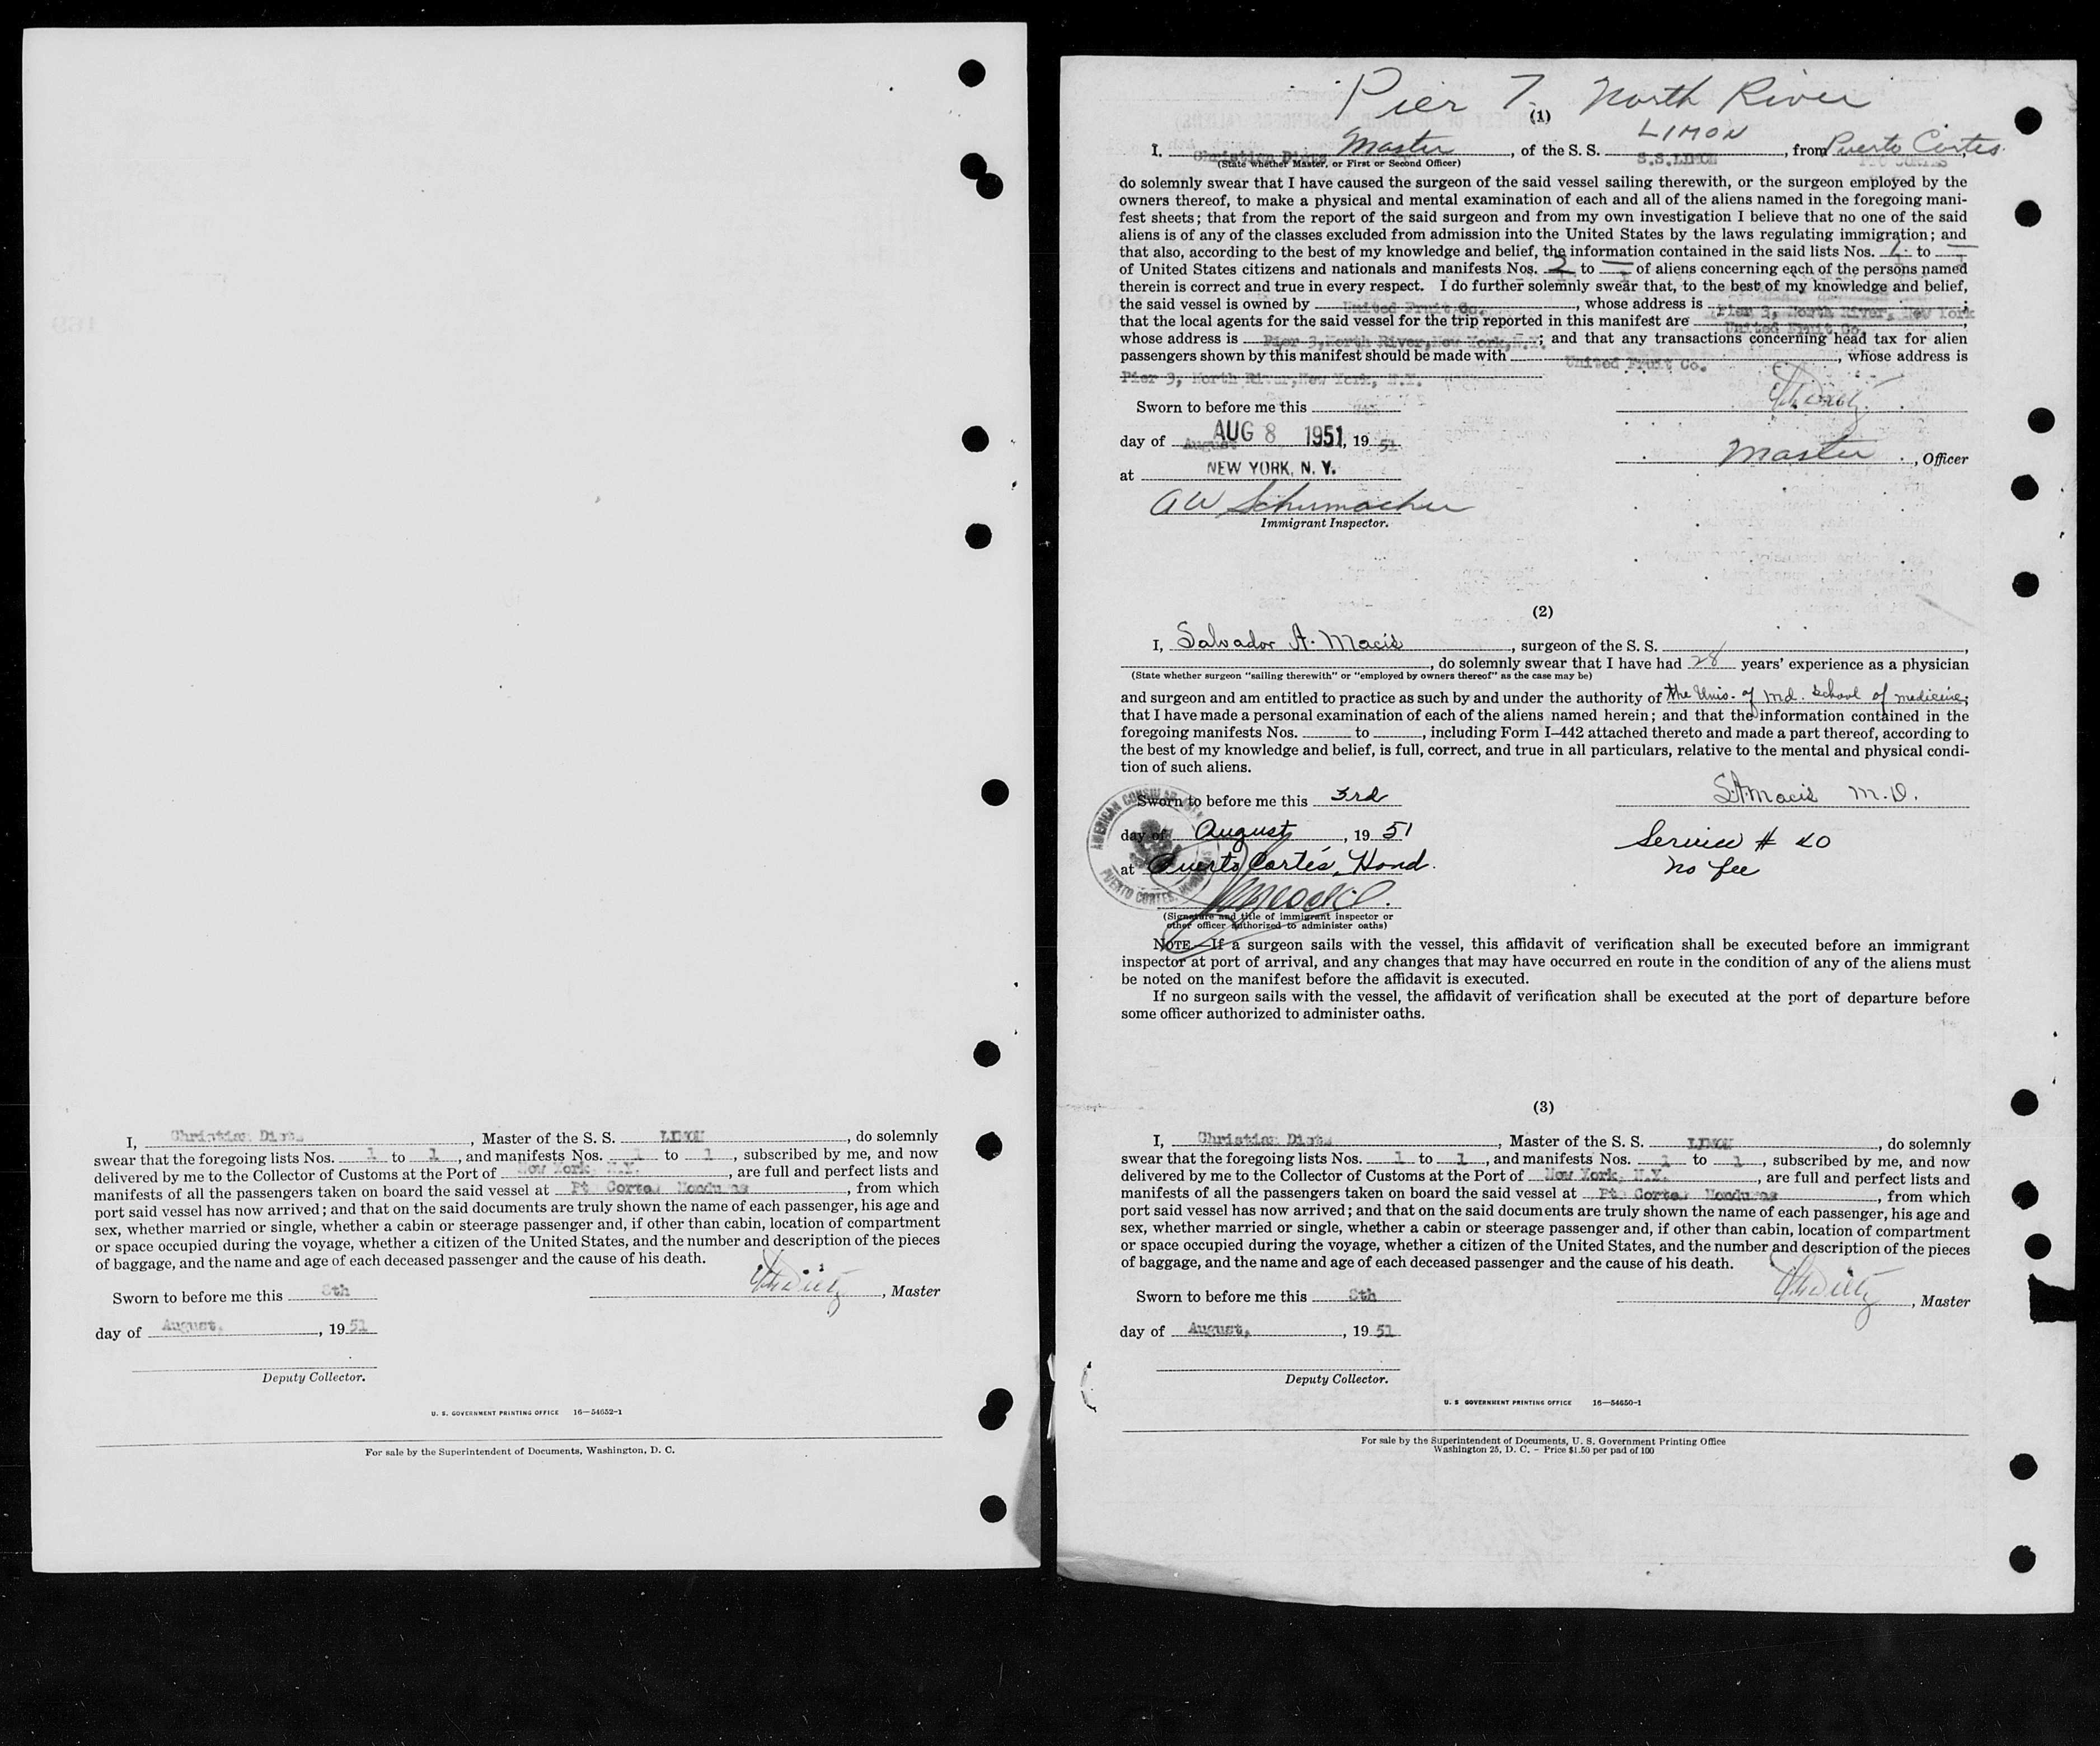 I, Christian Dietz, Master of the S. S. LIMON, do solemnly
swear that the foregoing lists Nos. 1 to 1, and manifests Nos. 1 to 1, subscribed by me, and now
delivered by me to the Collector of Customs at the Port of New York, N.Y., are full and perfect lists and
manifests of all the passengers taken on board the said vessel at Pt Cortes Honduras, from which
port said vessel has now arrived; and that on the said documents are truly shown the name of each passenger, his age and
sex, whether married or single, whether a cabin or steerage passenger and, if other than cabin, location of compartment
or space occupied during the voyage, whether a citizen of the United States, and the number and description of the pieces
of baggage, and the name and age of each deceased passenger and the cause of his death.
Sworn to before me this 8th
, Master
day of August, , 19 51
Deputy Collector.
U. S. GOVERNMENT PRINTING OFFICE 16—54652-1
For sale by the Superintendent of Documents, Washington, D. C.
Pier 7 North River
(1)
LIMON
I. Christian Dietz Master, of the S. S. S.S.LIMON, from Puerto Cortes
(State whether Master, or First or Second Officer)
do solemnly swear that I have caused the surgeon of the said vessel sailing therewith, or the surgeon employed by the
owners thereof, to make a physical and mental examination of each and all of the aliens named in the foregoing mani-
fest sheets; that from the report of the said surgeon and from my own investigation I believe that no one of the said
aliens is of any of the classes excluded from admission into the United States by the laws regulating immigration; and
that also, according to the best of my knowledge and belief, the information contained in the said lists Nos. 1 to —
of United States citizens and nationals and manifests Nos. 2 to — of aliens concerning each of the persons named
therein is correct and true in every respect. I do further solemnly swear that, to the best of my knowledge and belief,
the said vessel is owned by United Fruit Co., whose address is Pier 3, North River, New York;
that the local agents for the said vessel for the trip reported in this manifest are United Fruit Co.,
whose address is Pier 3, North River, New York, N.Y.; and that any transactions concerning head tax for alien
passengers shown by this manifest should be made with United Fruit Co., whose address is
Pier 3, North River, New York, N.Y.
Sworn to before me this
day of August AUG 8 1951, 19 51
Master, Officer
at NEW YORK, N. Y.
A W Schumacher
Immigrant Inspector.
(2)
I, Salvador A. Macis, surgeon of the S. S. ,
, do solemnly swear that I have had 28 years' experience as a physician
(State whether surgeon "sailing therewith" or "employed by owners thereof" as the case may be)
and surgeon and am entitled to practice as such by and under the authority of the Univ. of Md. School of medicine;
that I have made a personal examination of each of the aliens named herein; and that the information contained in the
foregoing manifests Nos. to , including Form I–442 attached thereto and made a part thereof, according to
the best of my knowledge and belief, is full, correct, and true in all particulars, relative to the mental and physical condi-
tion of such aliens.
AMERICAN CONSULAR
PUERTO CORTES, HONDURAS
Sworn to before me this 3rd
S.A. Macis M.D.
day of August, 19 51
Service # 40
at Puerto Cortés, Hond.
no fee
(Signature and title of immigrant inspector or
other officer authorized to administer oaths)
NOTE.—If a surgeon sails with the vessel, this affidavit of verification shall be executed before an immigrant
inspector at port of arrival, and any changes that may have occurred en route in the condition of any of the aliens must
be noted on the manifest before the affidavit is executed.
If no surgeon sails with the vessel, the affidavit of verification shall be executed at the port of departure before
some officer authorized to administer oaths.
(3)
I, Christian Dietz, Master of the S. S. LIMON, do solemnly
swear that the foregoing lists Nos. 1 to 1, and manifests Nos. 1 to 1, subscribed by me, and now
delivered by me to the Collector of Customs at the Port of New York, N.Y., are full and perfect lists and
manifests of all the passengers taken on board the said vessel at Pt. Cortes Honduras, from which
port said vessel has now arrived; and that on the said documents are truly shown the name of each passenger, his age and
sex, whether married or single, whether a cabin or steerage passenger and, if other than cabin, location of compartment
or space occupied during the voyage, whether a citizen of the United States, and the number and description of the pieces
of baggage, and the name and age of each deceased passenger and the cause of his death.
Sworn to before me this 8th
, Master
day of August, , 19 51
Deputy Collector.
U. S GOVERNMENT PRINTING OFFICE 16—54650-1
For sale by the Superintendent of Documents, U. S. Government Printing Office
Washington 25, D. C. - Price $1.50 per pad of 100